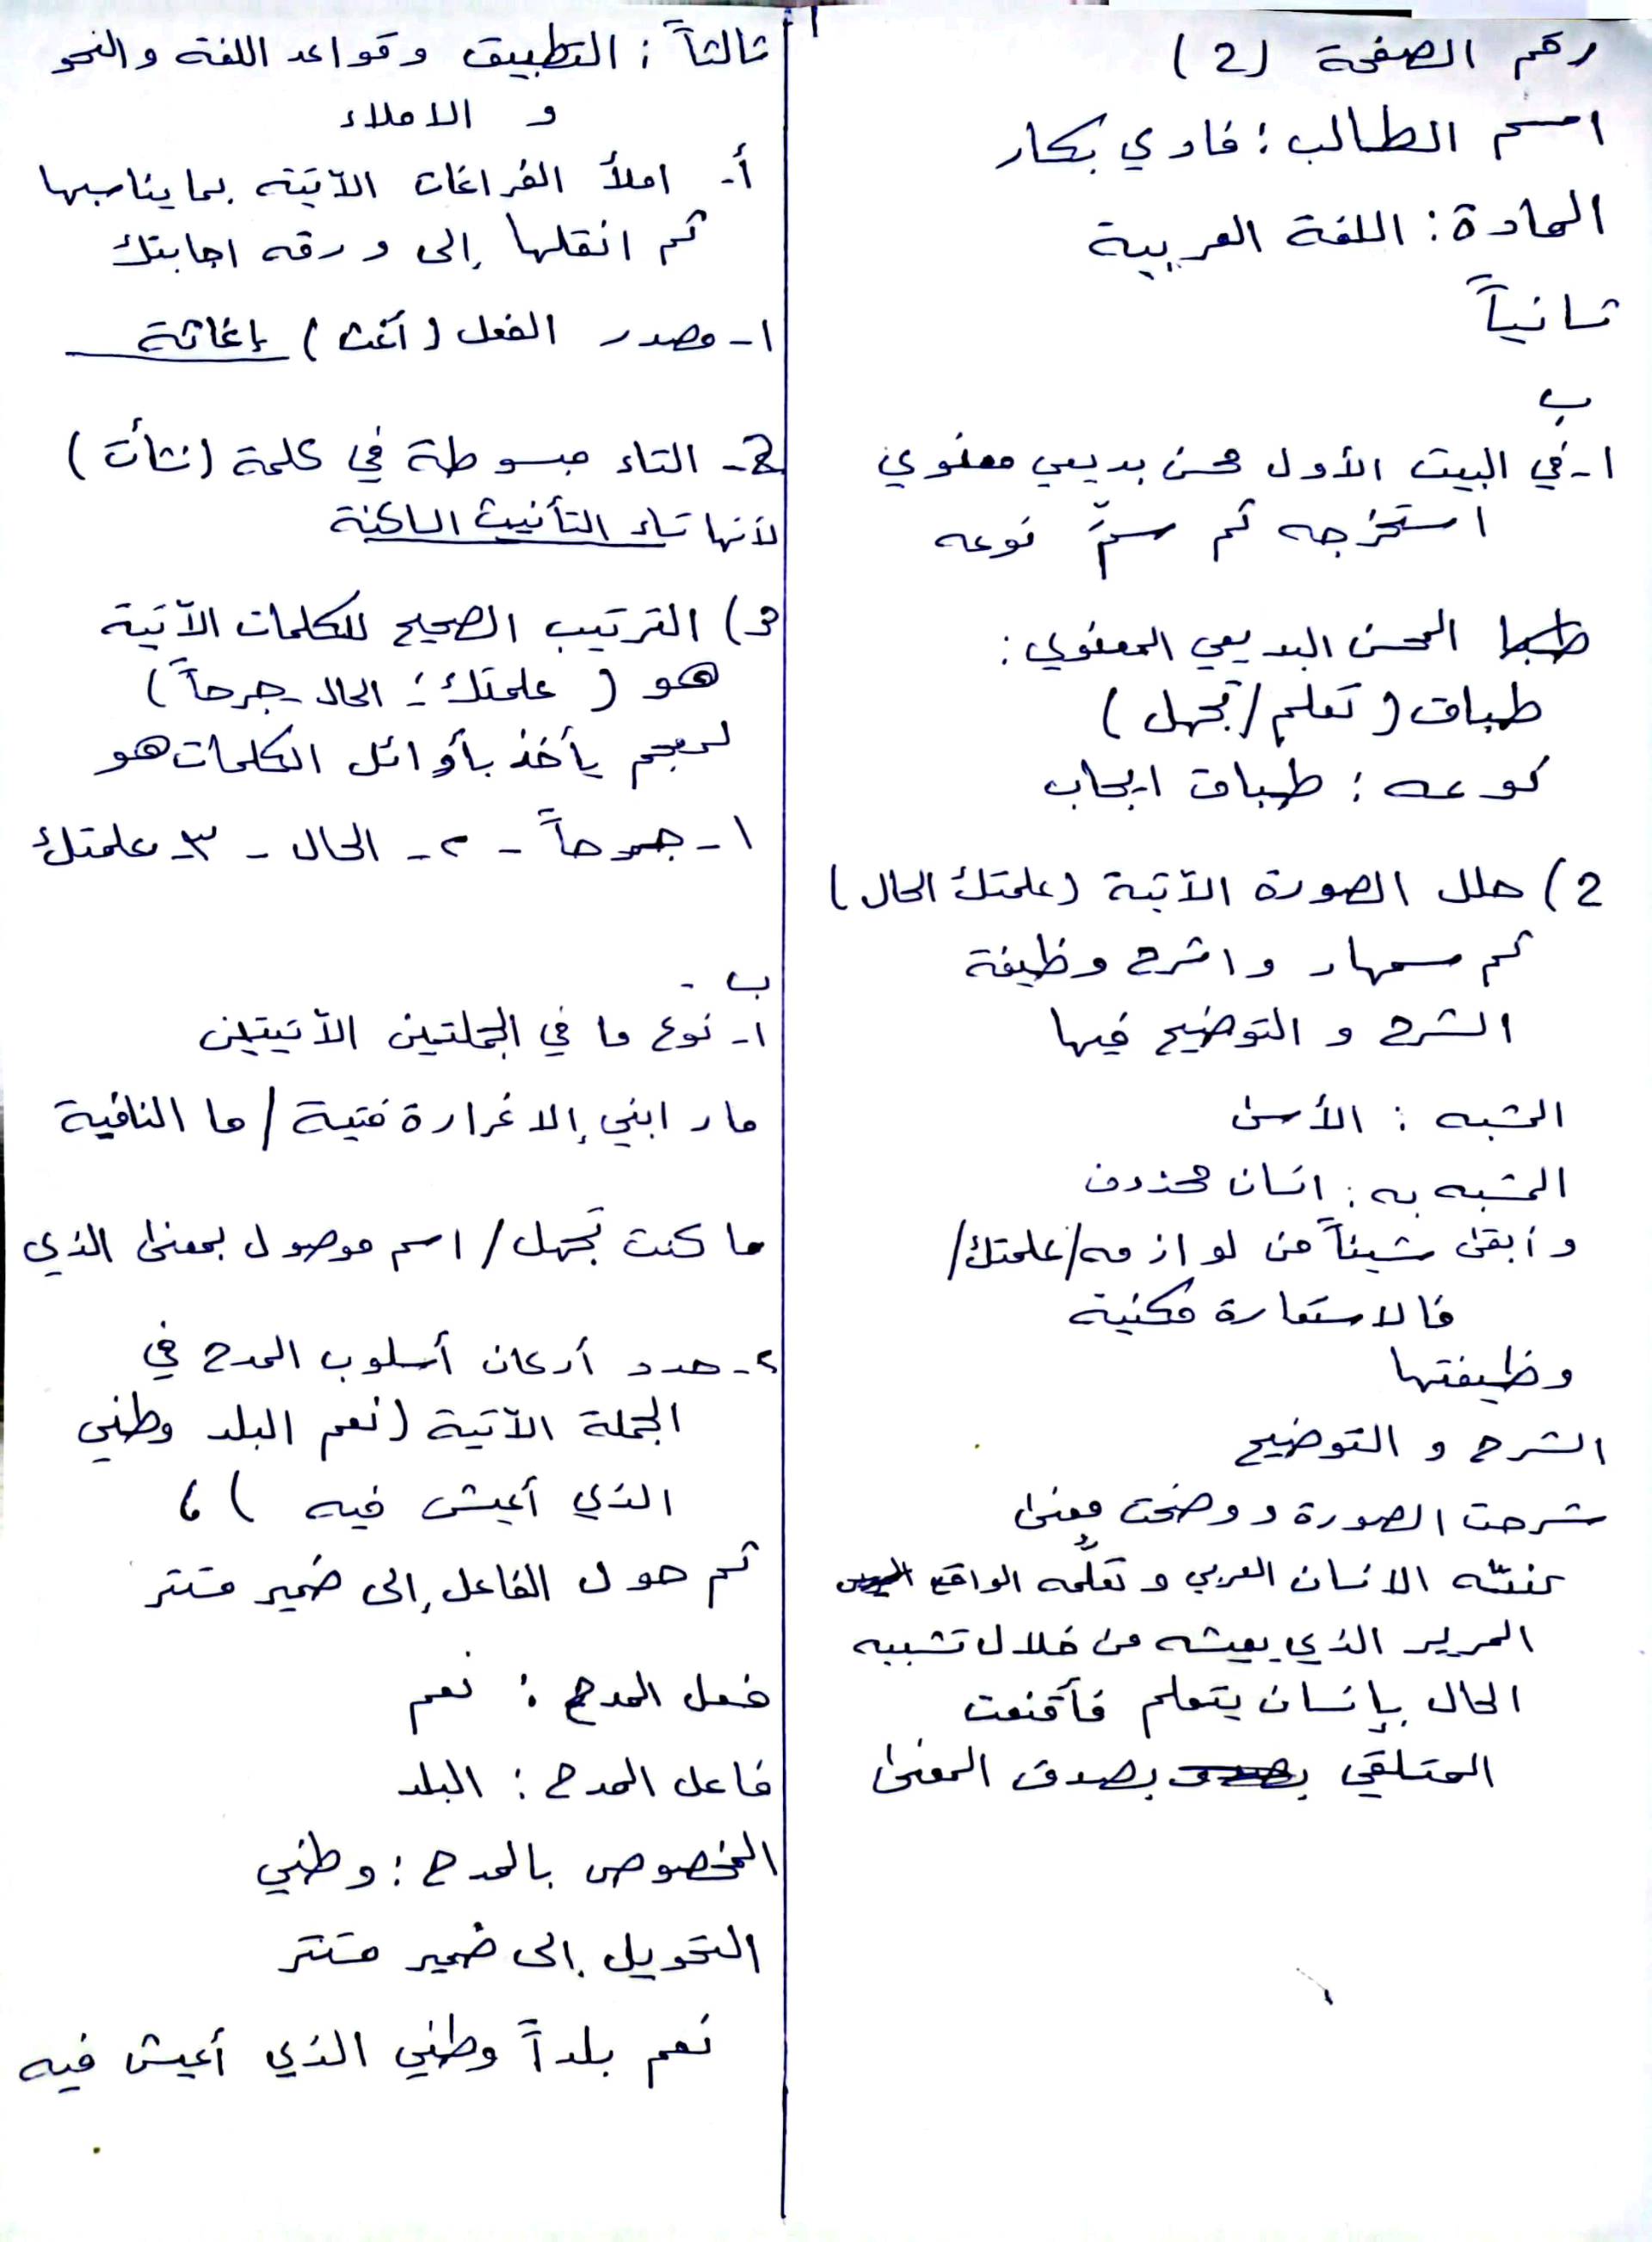 رقم الصفحة (2)
اسم الطالب: فادي بكار
المادة: اللغة العربية
ثانياً
ب
١- في البيت الأول محسن بديعي معنوي
استخرجه ثم سمِّ نوعه
المحسن البديعي المعنوي:
طباق (تعلم/تجهل)
نوعه: طباق ايجاب
2) حلل الصورة الآتية (علمتك الحال)
ثم سمها واشرح وظيفة
الشرح و التوضيح فيها
المشبه: الأسى
المشبه به: انسان محذوف
وأبقى شيئاً من لوازمه/علمتك/
فالاستعارة مكنية
وظيفتها
الشرح و التوضيح
شرحت الصورة ووضحت معنى
الانسان العربي وتعلّمه الواقع
المرير الذي يعيشه من خلال تشبيه
الحال بإنسان يتعلم فأقنعت
المتلقي بصدق المعنى
ثالثاً: التطبيق وقواعد اللغة والنحو
و الاملاء
أ- املأ الفراغات الآتية بما يناسبها
ثم انقلها إلى ورقه اجابتك
١- مصدر الفعل (أغث) إغاثة
2- التاء مبسوطة في كلمة (نشأت)
لأنها تاء التأنيث الساكنة
3) الترتيب الصحيح للكلمات الآتية
هو (علمتك؛ الحال - جرحاً)
يأخذ بأوائل الكلمات هو
١- جرحاً - ٢- الحال - ٣- علمتك
ب -
١- نوع ما في الجملتين الآتيتين
ما رابني إلا غرارة فتية/ما النافية
ما كنت تَجهل/اسم موصول بمعنى الذي
٢- حدد أركان أسلوب المدح في
الجملة الآتية (نعم البلد وطني
الذي أعيش فيه)،
ثم حول الفاعل إلى ضمير مستتر
فعل المدح: نعم
فاعل المدح: البلد
المخصوص بالمدح: وطني
التحويل إلى ضمير مستتر
نعم بلداً وطني الذي أعيش فيه